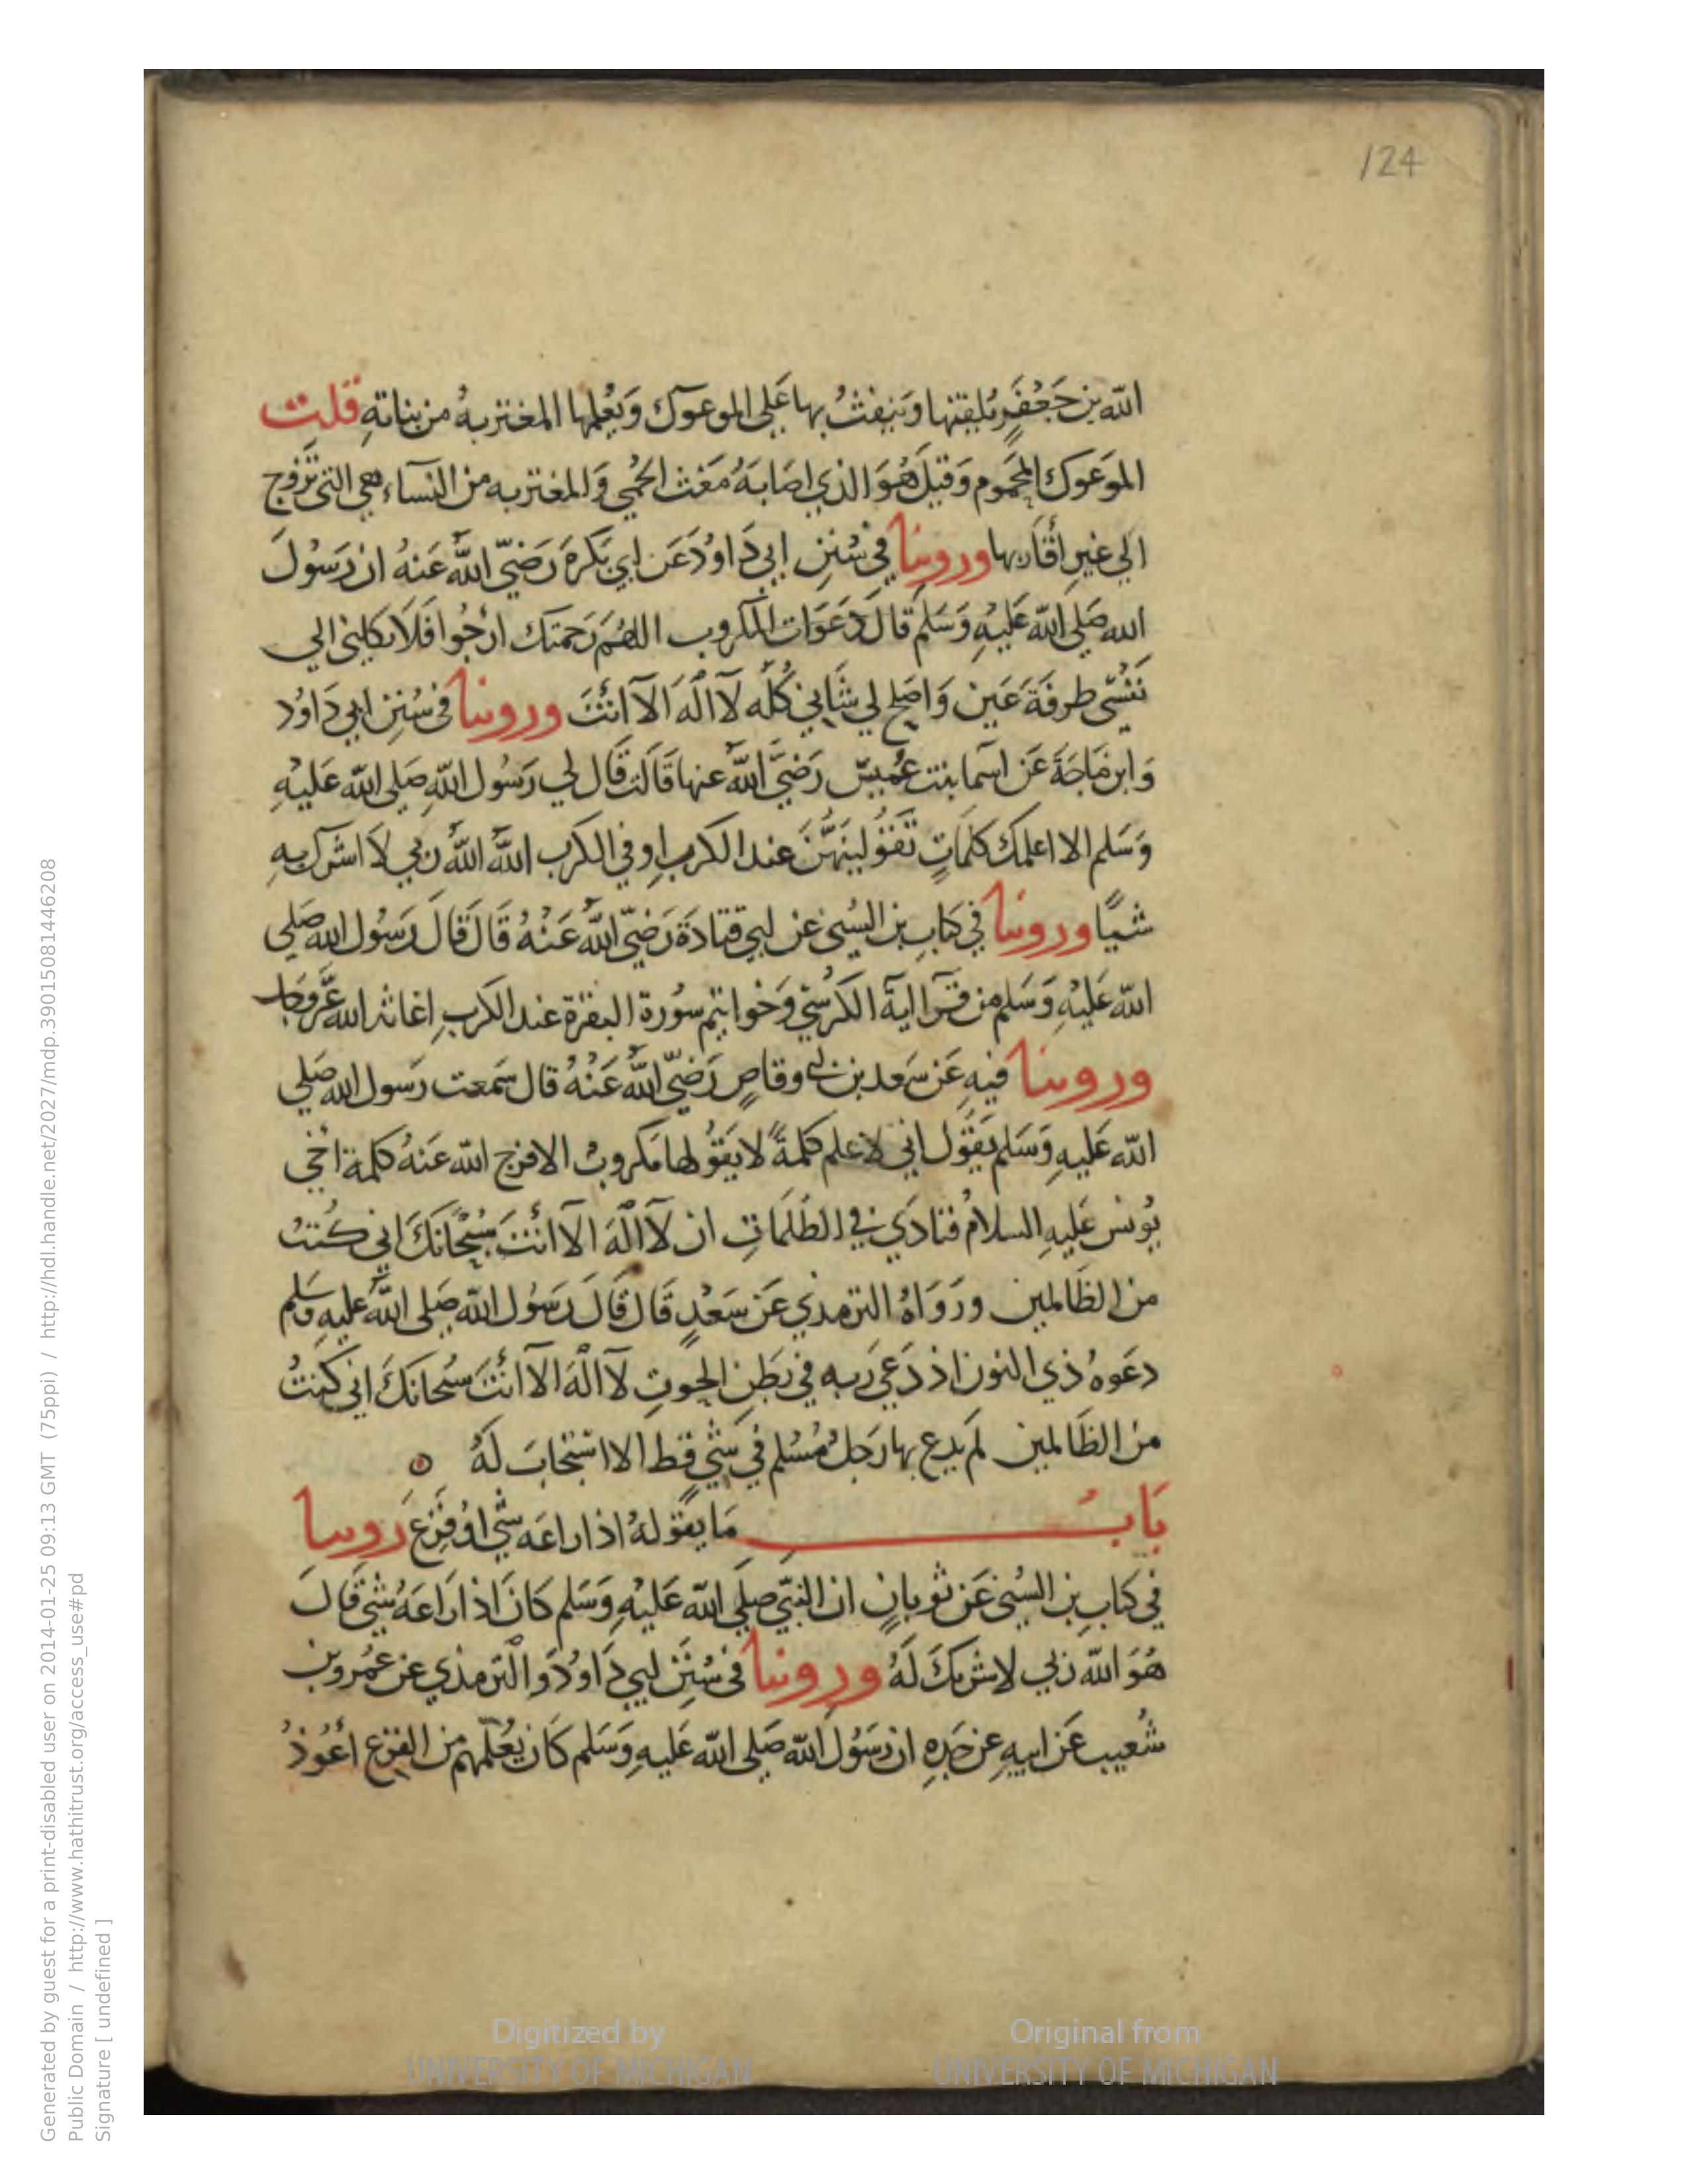 124
الله بن جَعْفَرٍ يُلقنها وَيَنفثُ بها عَلى الموعوك وَيُعلمها المغتربه من بناتهِ قلت
الموَعوك المحَموم وَقيلَ هُوَ الذي اصَابَهُ مَغث الحُمي وَالمغتربه من النسآء هي التي تزَوج
الي غيرِ أقَاربها وروينا في سُنَنِ ابي دَاوُدَ عَن ابي بَكرةَ رَضيّ اللهُ عَنهُ ان رَسُولَ
الله صَلي الله عَليهِ وَسَلم قالَ دَعَوَات المكروب اللهُم رَحمتك ارْجُوا فَلا تكلني الي
نَفسي طرفَةَ عَين وَاصَلح لي شَاني كُلَّه لآ الهَ الآ انتَ وروينا في سُنن ابي دَاوُد
وَابن مَاجَةَ عَن اسمآ بنت عُميسٍ رَضيَّ اللهُ عنها قَالت قَال لي رَسُول اللهِ صَلى الله عَليهِ
وَسَلم الا اعلمك كلمَاتٍ تَقوُلينَهُنَّ عند الكرب اوِ في الكرب اللهُ اللهُ ربي لاَ اشرك بهِ
شيًا وروينا في كتابِ بن السُني عَن ابي قتادَةَ رَضيّ اللهُ عَنْهُ قَالَ قَالَ رَسُول الله صَلي
الله عَليْهِ وَسَلم من قَرَا اية الكرسيّ وَخواتيم سُورة البقرة عند الكربِ اغاثه الله عَزَّ وَجل
وروينا فيهِ عَن سَعد بن ابي وقاصٍ رَضيّ اللهُ عَنْهُ قال سَمعت رَسول الله صَلي
الله عَليهِ وَسَلم يَقُول اني لاعلم كلمةً لا يَقُولها مَكروبٌ الا فرج الله عَنهُ كلمة اخي
يُونس عَليهِ السلامُ فنادَي في الظُلمَاتِ ان لآ الهَ الآ انتَ سُبْحَانَكَ اني كُنتُ
من الظَالمين ورَوَاهُ الترمذي عَن سَعْدٍ قَال قَالَ رَسُول الله صَلى اللهُ عليهِ وَسَلم
دعَوهُ ذي النون اذ دَعَي رَبه في بَطن الحوتِ لآ الهَ الآ انتَ سُبحانَكَ اني كُنتُ
من الظَالمين لم يدع بها رَجلٌ مُسْلم في شَيٍ قط الا استجَابَ لَهُ ٥
بَابُ مَا يقولهُ اذا راعَه شَي اوْ فَزِعَ روينا
في كتابِ بن السُني عَن ثوبانٍ ان النَبيّ صَلي الله عَليْهِ وَسَلم كانَ اذا رَاعَهُ شَي قَالَ
هُوَ الله ربي لا شريك لَهُ وروينا في سُنَن ابي دَاوُدَ وَالترمذي عَن عمُرو بن
شُعيب عَن ابيهِ عن جَدِهِ ان رَسُولَ الله صَلي الله عَليهِ وَسَلم كَان يُعَلّمهم من الفزع أعُوذُ
Generated by guest for a print-disabled user on 2014-01-25 09:13 GMT (75ppi) / http://hdl.handle.net/2027/mdp.39015081446208
Public Domain / http://www.hathitrust.org/access_use#pd
Signature [ undefined ]
Digitized by
UNIVERSITY OF MICHIGAN
Original from
UNIVERSITY OF MICHIGAN